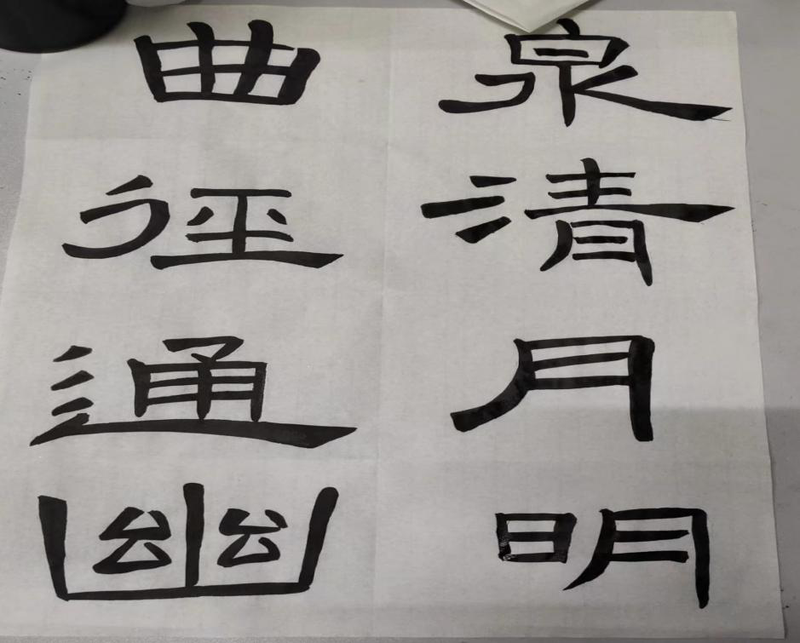 泉清月明
曲徑通幽